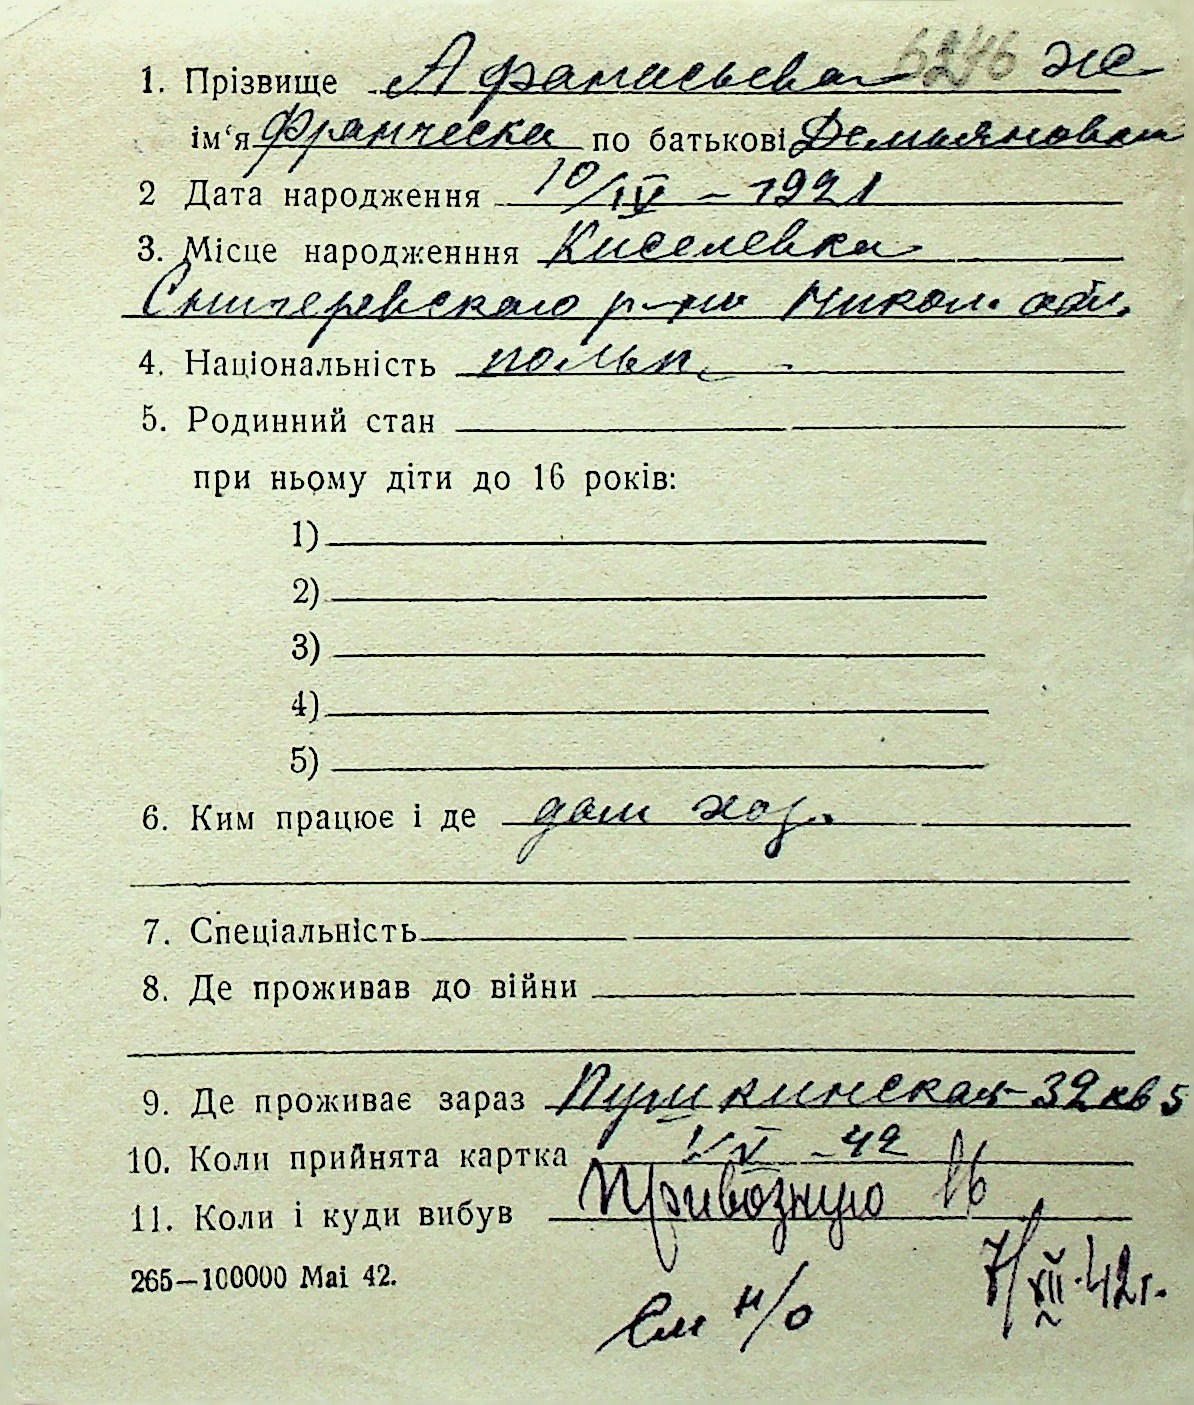 6246
1. Прізвище Афанасьева же
ім'я Франческа по батькові Демьяновна
2 Дата народження 10/IV – 1921
3. Місце народженння Киселевка
Снигеревского р-на Никол. обл.
4. Національність польк.
5. Родинний стан
при ньому діти до 16 років:
1)
2)
3)
4)
5)
6. Ким працює і де дом хоз.
7. Спеціальність
8. Де проживав до війни
9. Де проживає зараз Пушкинская 32 кв 5
10. Коли прийнята картка V – 42
11. Коли і куди вибув Привозную 16
265—100000 Mai 42.
7/XII-42г.
См н/о